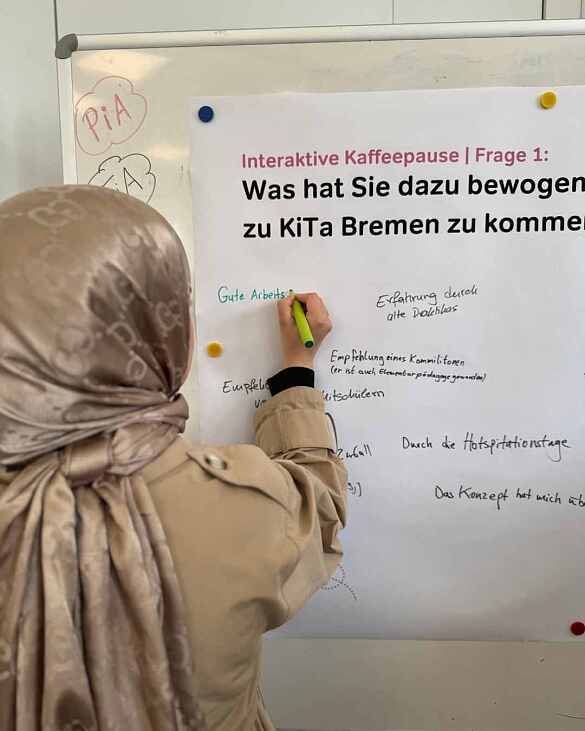 PiA
PiA
Interaktive Kaffeepause | Frage 1:
Was hat Sie dazu bewogen
zu KiTa Bremen zu komme
Gute Arbeits
Erfahrung durch
alte Praktikas
Empfehlung eines Kommilitonen
(er ist auch Elementarpädagoge geworden)
Empfehl
itschülern
Zufall
Durch die Hospitationstage
Das Konzept hat mich üb